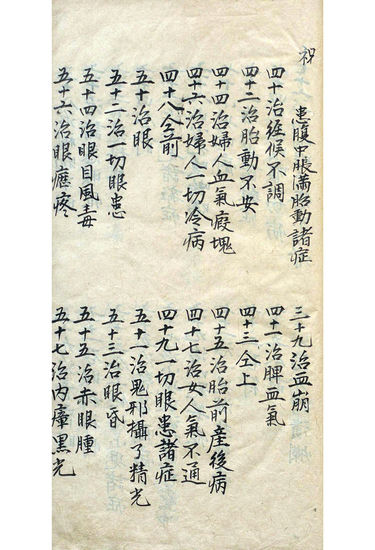 祝
患腹中脹滿胎動諸症
三十九治血崩
四十治經候不調
四十一治脾血氣
四十二治胎動不安
四十三仝上
四十四治婦人血氣瘕塊
四十五治胎前産後病
四十六治婦人一切冷病
四十七治女人氣不通
四十八仝前
四十九一切眼患諸症
五十治眼
五十一治鬼邪攝了精光
五十二治一切眼患
五十三治眼昏
五十四治眼目風毒
五十五治赤眼腫
五十六治眼疼
五十七治内瘴黑光